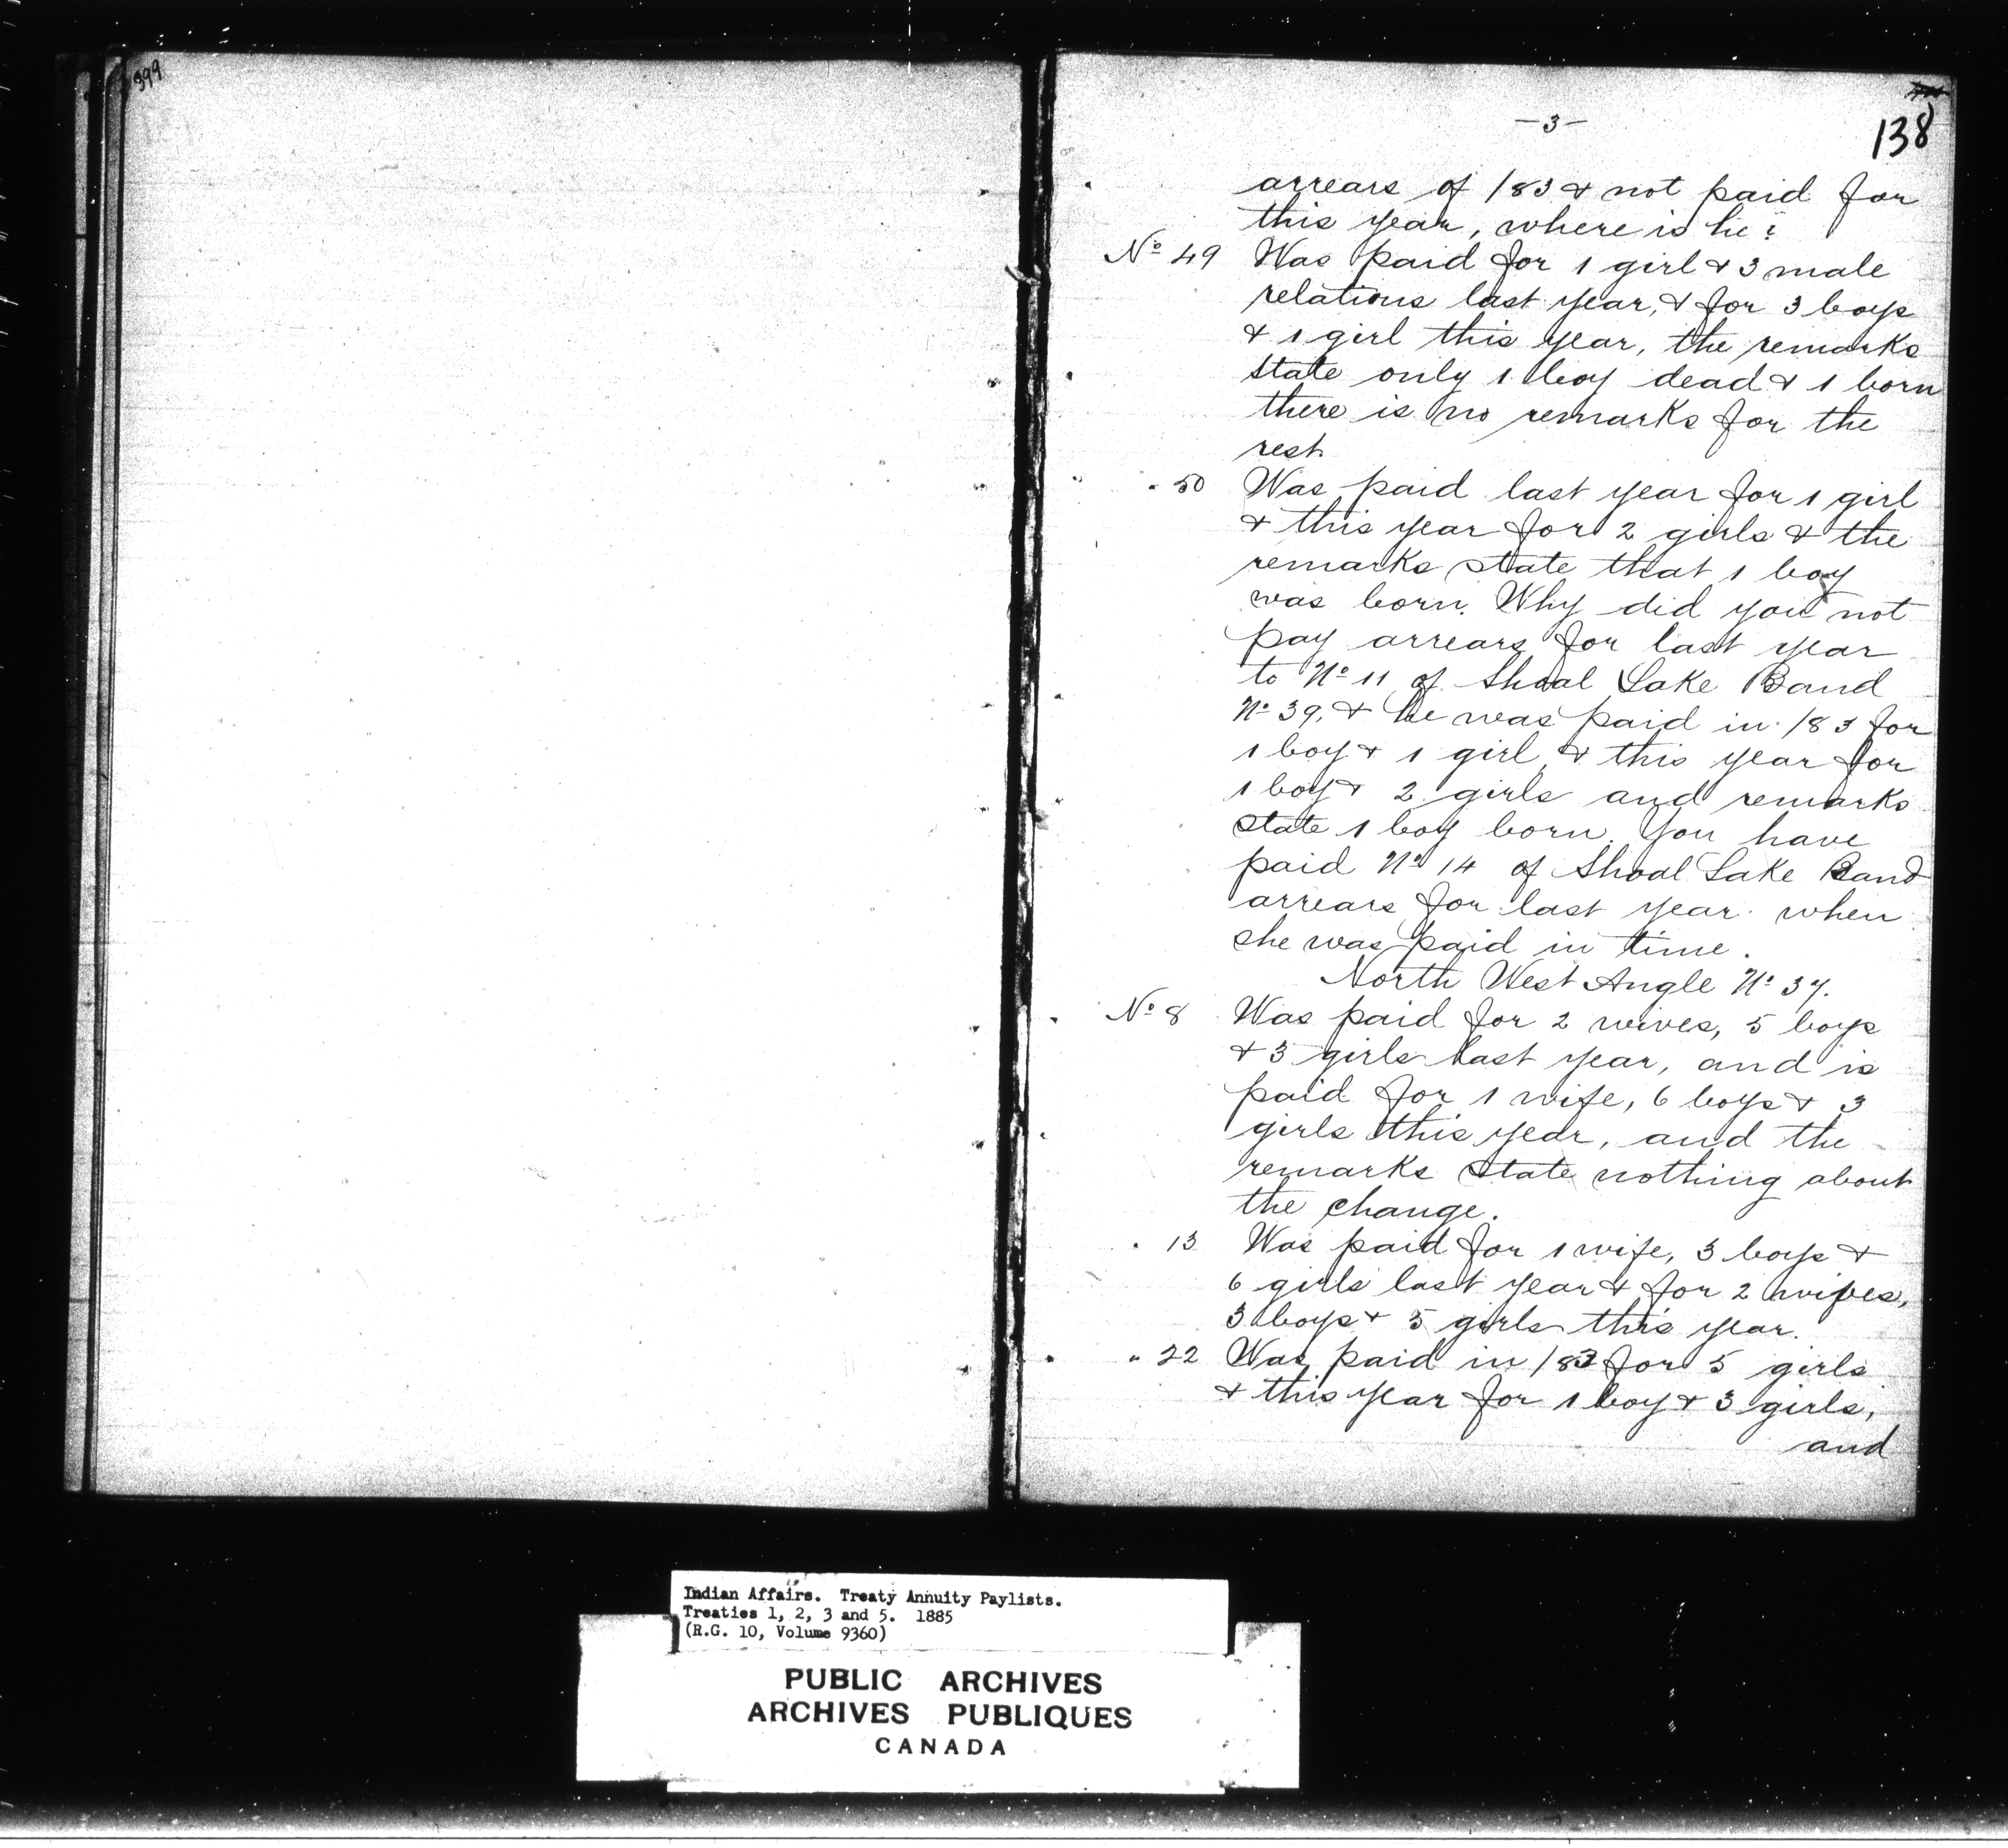 399
-3-
138
arrears of /83 & not paid for
this year, where is he?
No 49 Was paid for 1 girl & 3 male
relations last year, & for 3 boys
& 1 girl this year, the remarks
state only 1 boy dead & 1 born
there is no remarks for the
rest
" 50 Was paid last year for 1 girl
& this year for 2 girls & the
remarks state that 1 boy
was born. Why did you not
pay arrears for last year
to No 11 of Shoal Lake Band
No 39, & he was paid in /83 for
1 boy & 1 girl, & this year for
1 boy & 2 girls and remarks
state 1 boy born. You have
paid No 14 of Shoal Lake Band
arrears for last year when
she was paid in time.
North West Angle No 37.
No 8 Was paid for 2 wives, 5 boys
& 3 girls last year, and is
paid for 1 wife, 6 boys & 3
girls this year, and the
remarks state nothing about
the change.
" 13 Was paid for 1 wife, 3 boys &
6 girls last year & for 2 wives,
3 boys & 5 girls this year.
" 22 Was paid in /83 for 5 girls
& this year for 1 boy & 3 girls,
and
Indian Affairs. Treaty Annuity Paylists.
Treaties 1, 2, 3 and 5. 1885
(R.G. 10, Volume 9360)
PUBLIC ARCHIVES
ARCHIVES PUBLIQUES
CANADA